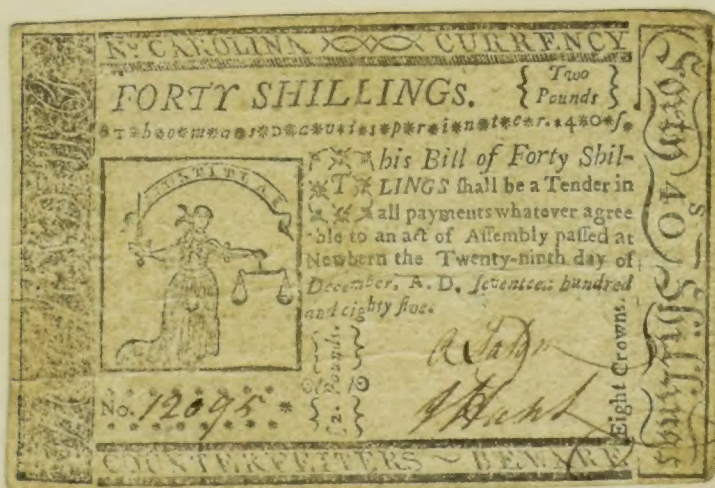 No. CAROLINA CURRENCY
FORTY SHILLINGS.
Two
Pounds
T*h*o*m*a*s*D*a*v*i*s*p*r*i*n*t*e*r.*4*0*ſ.
JUSTITIA
This Bill of Forty Shil-
LINGS ſhall be a Tender in
all payments whatever agree
able to an act of Aſſembly paſſed at
Newbern the Twenty-ninth day of
December, A. D. ſeventeen hundred
and eighty five.
No. 12095
2. Pounds.
J Hunt
Eight Crowns.
Forty 40 S Shillings
COUNTERFEITERS ~ BEWARE